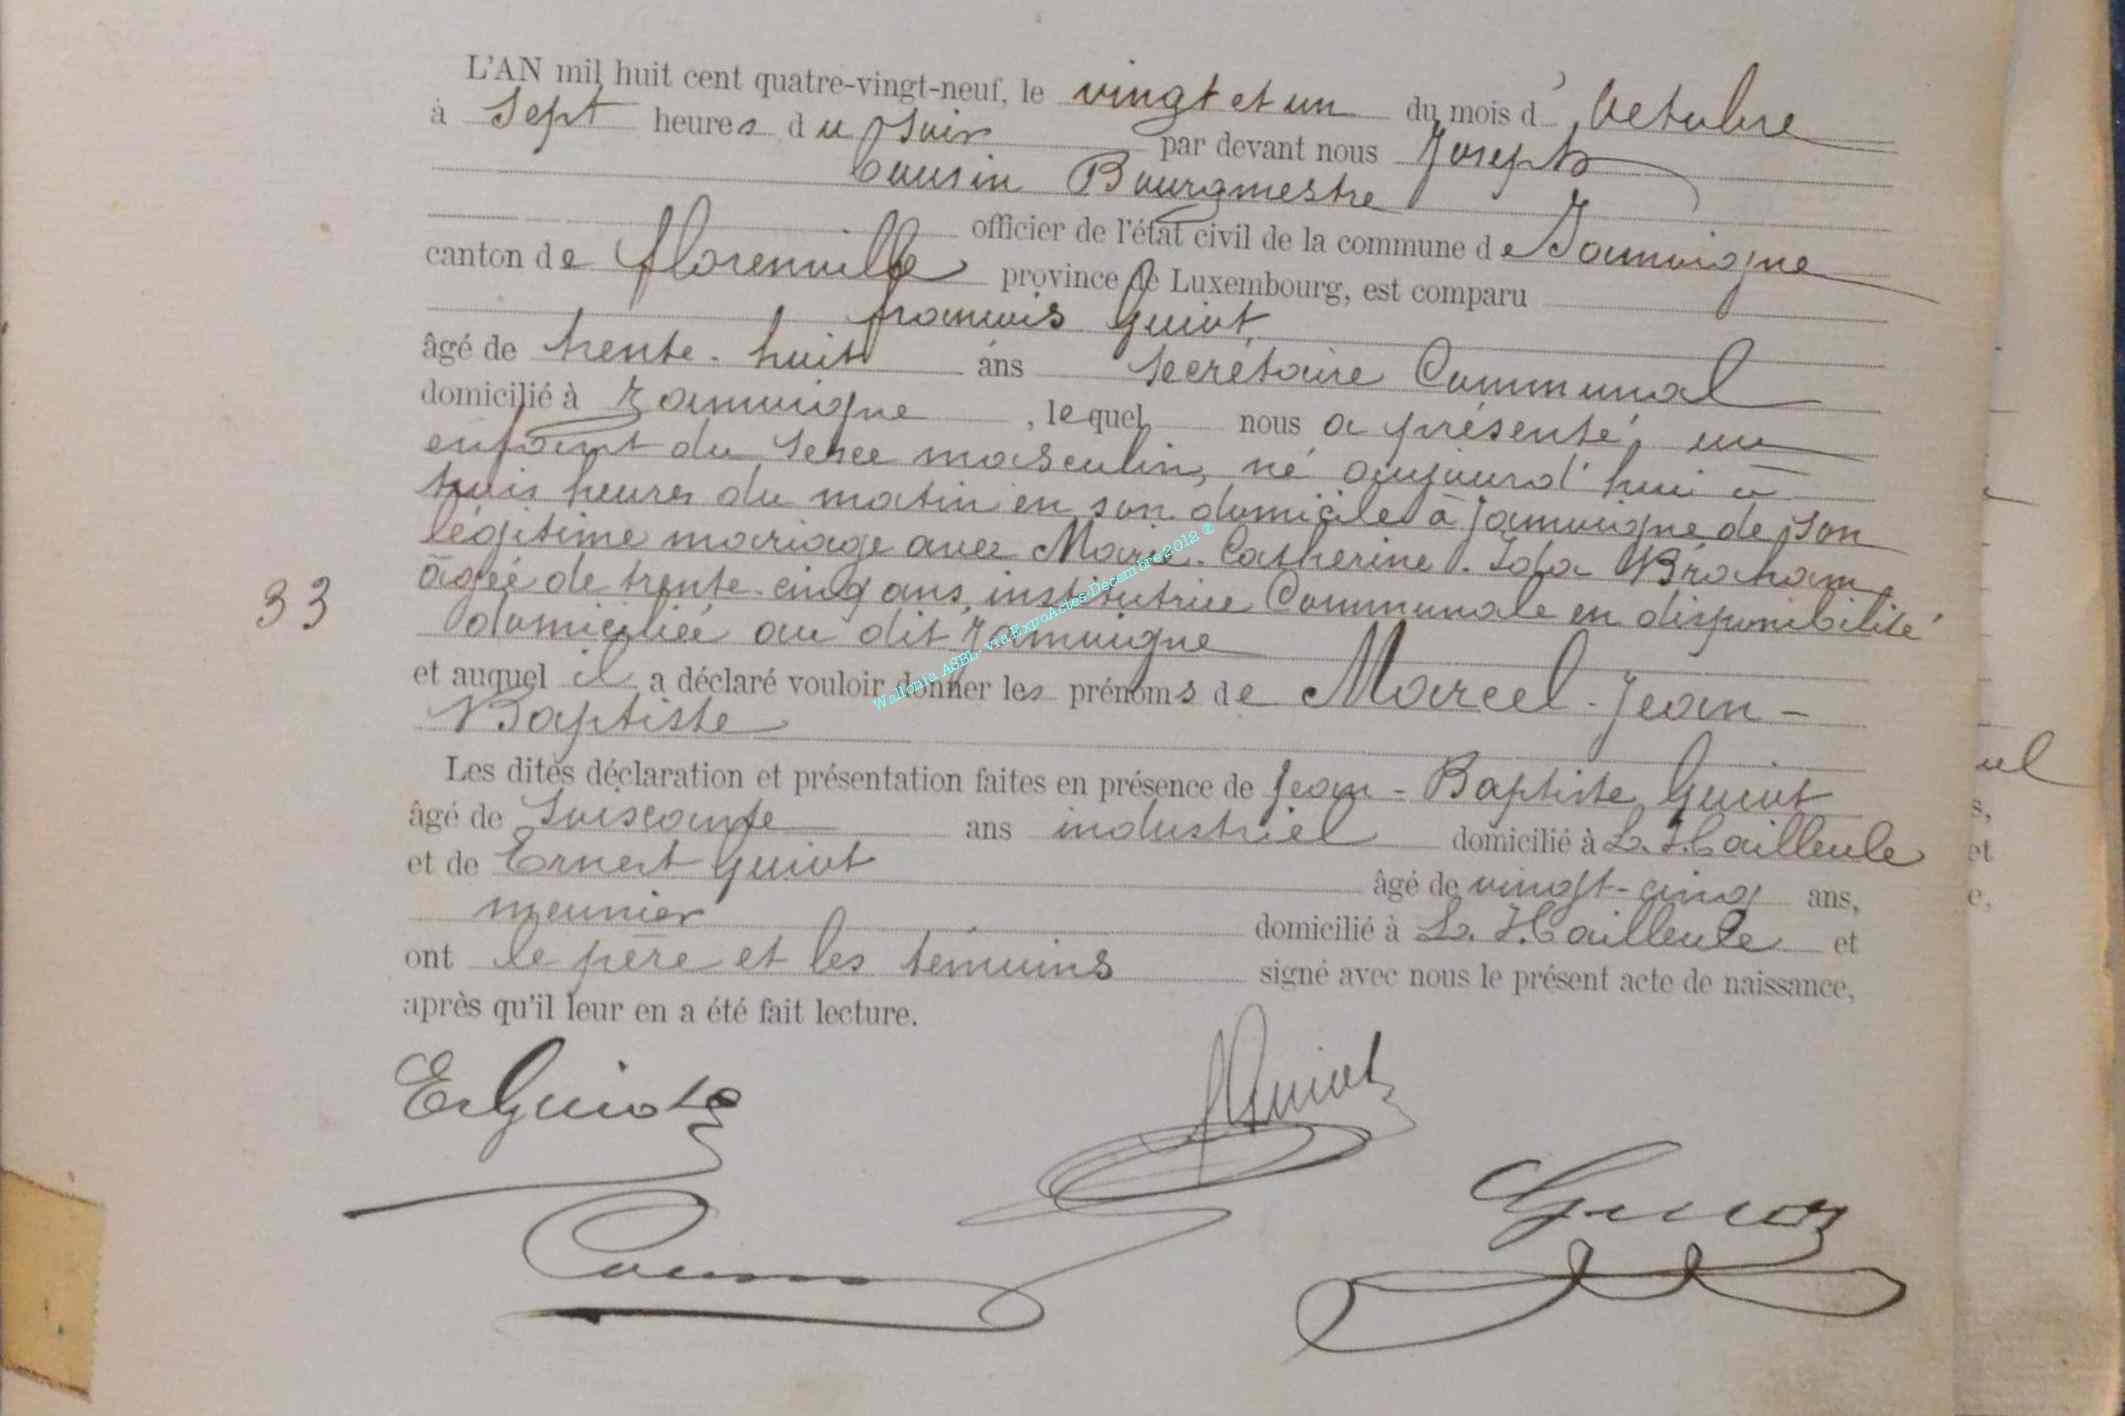 L'AN mil huit cent quatre-vingt-neuf, le vingt et un du mois d'Octobre
à Sept heures du Soir par devant nous Joseph
Cousin Bourgmestre
officier de l'état civil de la commune de Jamoigne
canton de florenville province de Luxembourg, est comparu
françois Guiot
âgé de trente-huit ans Secrétaire Communal
domicilié à Jamoigne, lequel nous a présenté, un
enfant du Sexe masculin, né aujourd'hui à
trois heures du matin en son domicile à Jamoigne de son
légitime mariage avec Marie-Catherine-Ida Braham,
33
âgée de trente-cinq ans, institutrice Communale en disponibilité
domiciliée au dit Jamoigne
et auquel il a déclaré vouloir donner les prénoms de Marcel-Jean-
Baptiste
Wallonia ASBL - via ExpoActes Decembre 2012 ®
Les dites déclaration et présentation faites en présence de Jean-Baptiste Guiot
âgé de Soiscante ans industriel domicilié à L. Hailleule
et de Ernest Guiot âgé de vingt-cinq ans,
meunier domicilié à L. Hailleule et
ont le père et les témoins signé avec nous le présent acte de naissance,
après qu'il leur en a été fait lecture.
E Guiot
Guiot
Guiot
Cousin